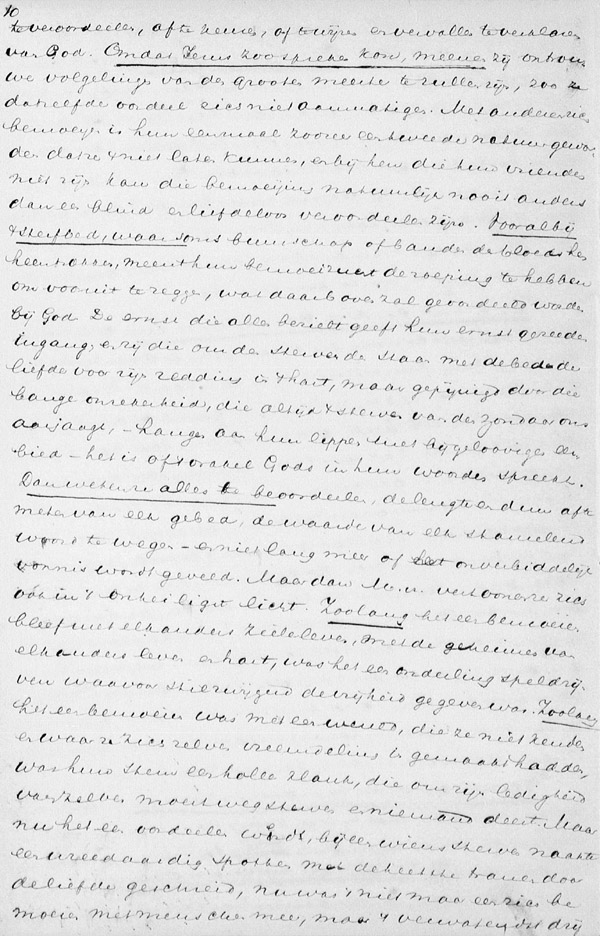 10
te veroordeelen, af te keuren, of te wijzen en vervallen te verklaren
van God. Omdat Jezus zoo spreken kon, meenen zij
we volgelingen van den grooten meester te zullen zijn, zoo ze
datzelfde oordeel zich niet aanmatigen. Met anderen zich
bemoeyen is hun eenmaal zoozeer een tweede natuur gewor
den dat ze 't niet laten kunnen, en bij hen die hun vrienden
niet zijn kan die bemoeijing natuurlijk nooit anders
dan een blind en liefdeloos veroordeelen zijn. Vooral bij
't sterfbed, waar soms buurschap of banden des bloeds hen
heen trokken, meent hun bemoeizucht de roeping te hebben
om vooruit te zeggen, wat daarboven zal geoordeeld worden
bij God. De ernst die allen bezielt geeft hun ernst gereeden
ingang, en zij die om den stervende staan met de bede der
liefde voor zijn redding in 't hart, maar gepijnigd door die
bange onzekerheid, die altijd 't sterven van den zondaar ons
aanjaagt, - hangen aan hun lippen met bijgeloovigen eer
bied - het is of 't orakel Gods in hun woorden spreekt.
Dan weten ze alles te beoordeelen, de lengte en duur af te
meten van elk gebed, de waarde van elk stamelend
woord te wegen - en niet lang meer of het onverbiddelijk
vonnis wordt geveld. Maar dan M. v. vertoonen ze zich
ook in 't onheiligst licht. Zoolang het een bemoeien
bleef met elkanders zieleleven, met de geheimen van
elkanders leven en hart, was het een onderling speldrij
ven waarvoor stilzwijgend de vrijheid gegeven was. Zoolang
het een bemoeien was met een wereld, die ze niet kenden
en waar ze zich zelven vreemdeling in gemaakt hadden,
was hun stem een holle klank, die om zijn ledigheid
van zelven moest wegsterven en niemand deert. Maar
nu het een oordeelen wordt, bij een wiens sterven naakte
een wreedaardig spotten met de heetste tranen door
de liefde geschreid, nu was 't niet maar een zich be
moeien met menschen meer, maar 't verwaten